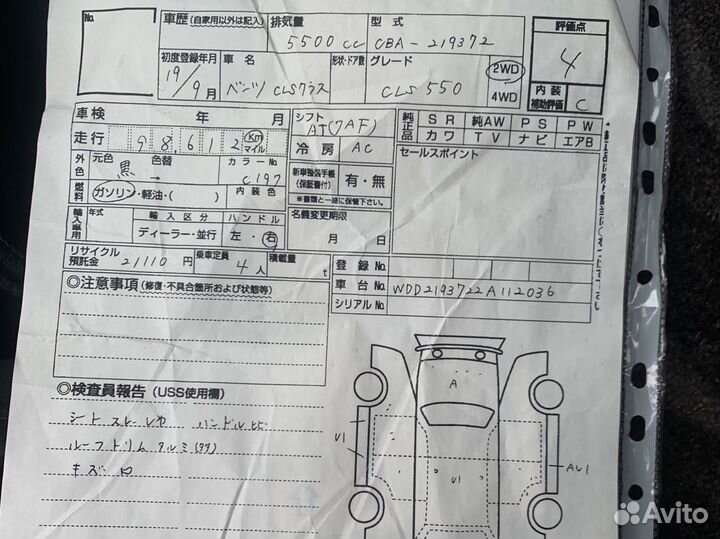 No.
車歴 (自家用以外は記入) 排気量 型式
5500cc CBA-219372
初度登録年月 車名 形状・ドア数 グレード
19/9月 ベンツ CLSクラス CLS 550 2WD 4WD
評価点
4
内装補助評価 C
車検 年 月
走行 98612 Km マイル
シフト AT(7AF)
冷房 AC
純正品 SR 純AW PS PW
カワ TV ナビ エアB
セールスポイント
外色 元色 黒 色替 → カラーNo. C197
内装色
燃料 ガソリン・軽油・( )
新車整備手帳(保証書付) 有・無
※書類と一緒に保管下さい
輸入車用 年式 輸入区分 ハンドル
ディーラー・並行 左・右
名義変更期限
月 日
リサイクル預託金 21110円 乗車定員 4人 積載量 t
登録No.
車台No. WDD2193722A112036
シリアルNo.
◎注意事項 (修復・不具合箇所および状態等)
◎検査員報告 (USS使用欄)
シートスレ ハンドル
ルーフトリム
キズ
A
U1
U1
AU1
Avito